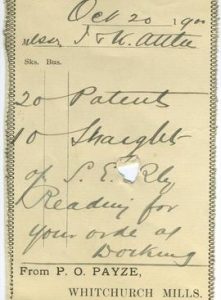 Oct 20 190
Messrs. J & K. Attlee
Sks. Bus.
20 Patents
10 Straight
of S. E. Rly
Reading for
your order at
Dorking
From P. O. PAYZE,
WHITCHURCH MILLS.